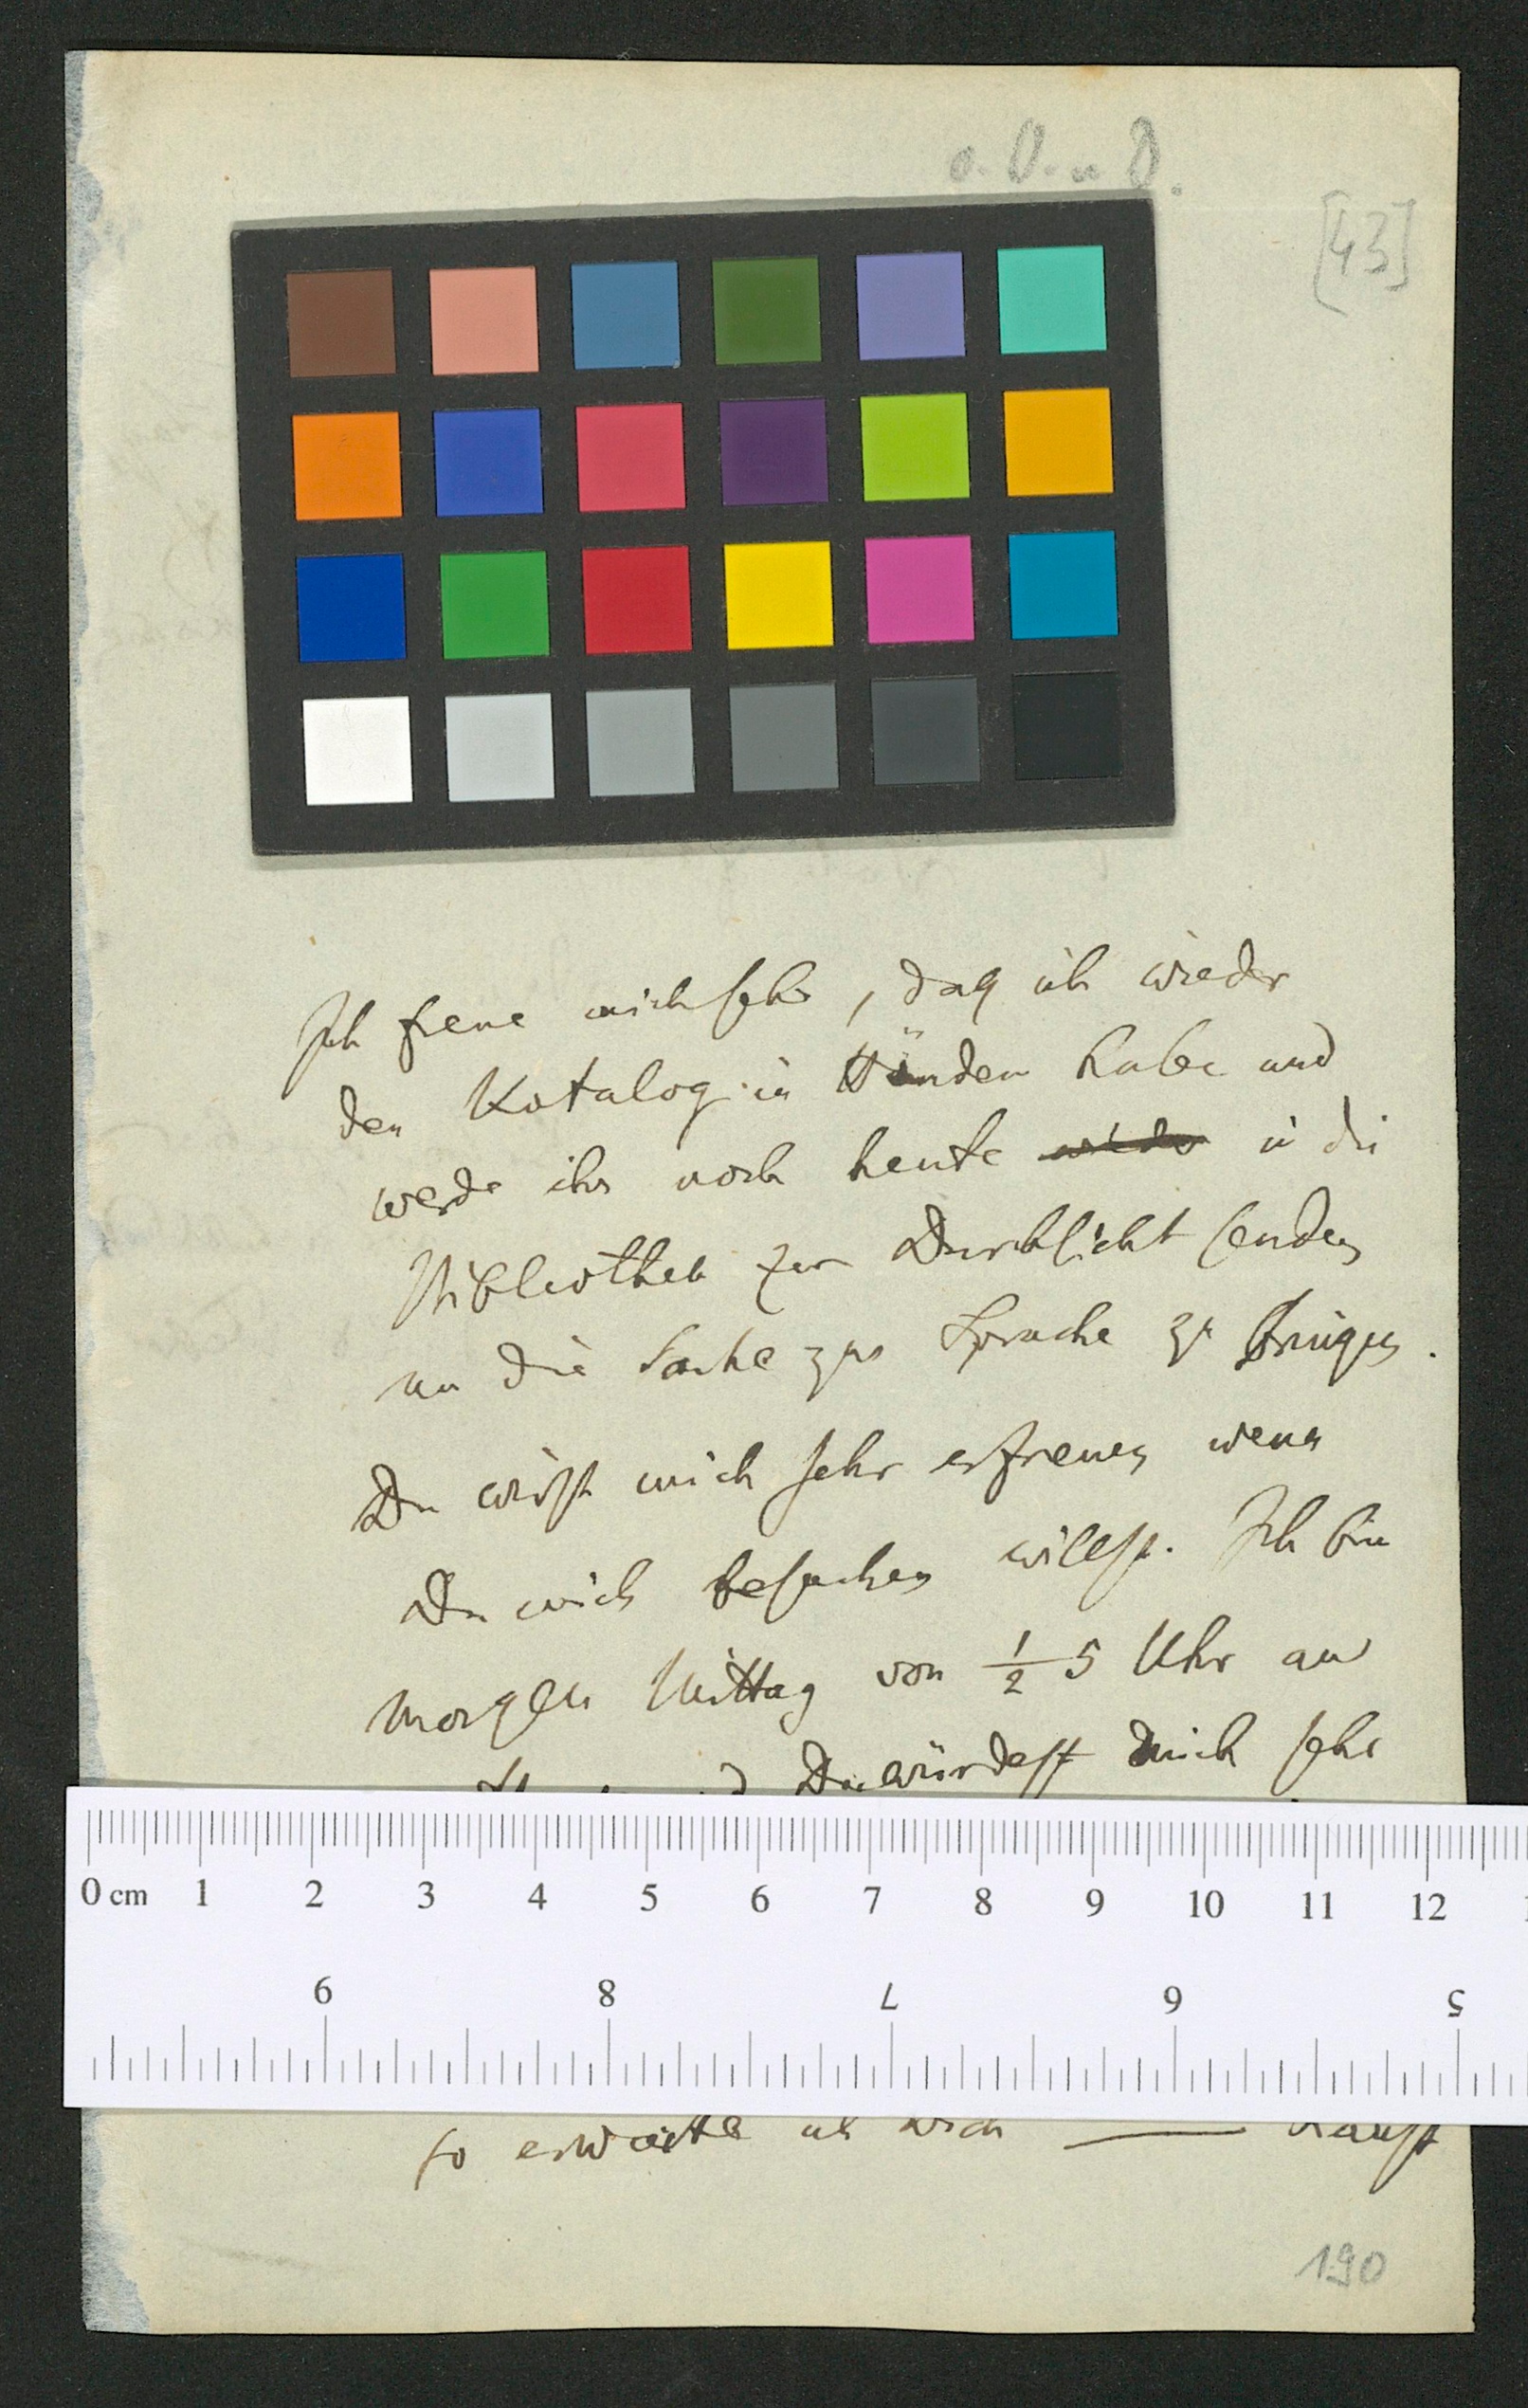 o. O. u D.
[43]
Ich freue mich sehr, daß ich wieder
den Katalog in Händen habe und
werde ihn noch heute wieder in die
Bibliothek zur Durchsicht senden
um die Sache zur Sprache zu bringen.
Du wirst mich sehr erfreuen wenn
Du mich besuchen willst. Ich bin
morgen Mittag von ½ 5 Uhr an
Du würdest mich sehr
0 cm 1 2 3 4 5 6 7 8 9 10 11 12
9 8 7 6 5
so erwarte ich Dich
190